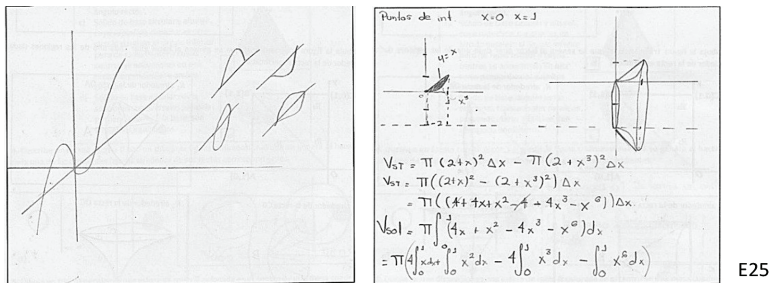 Puntos de int x=0 x=1
y=x
x³
-2
V_ST = π(2+x)² Δx - π(2 + x³)² Δx
V_ST = π((2+x)² - (2 + x³)²) Δx
= π((4+4x+x² - 4 - 4x³ - x⁶))Δx
V_sol = π∫₀¹(4x + x² - 4x³ - x⁶)dx
= π(4∫₀¹xdx+∫₀¹x²dx - 4∫₀¹x³dx - ∫₀¹x⁶dx)
E25